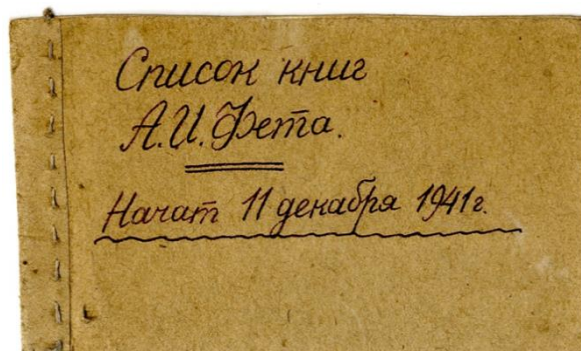 Список книг
А.И. Фета.
Начат 11 декабря 1941г.